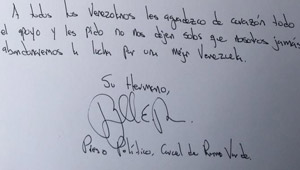 A todos los Venezolanos les agradezco de corazón todo
el apoyo y les pido no nos dejen solos que nosotros jamás
abandonaremos la lucha por una mejor Venezuela.
Su Hermano,
Preso Político, Carcel de Ramo Verde.